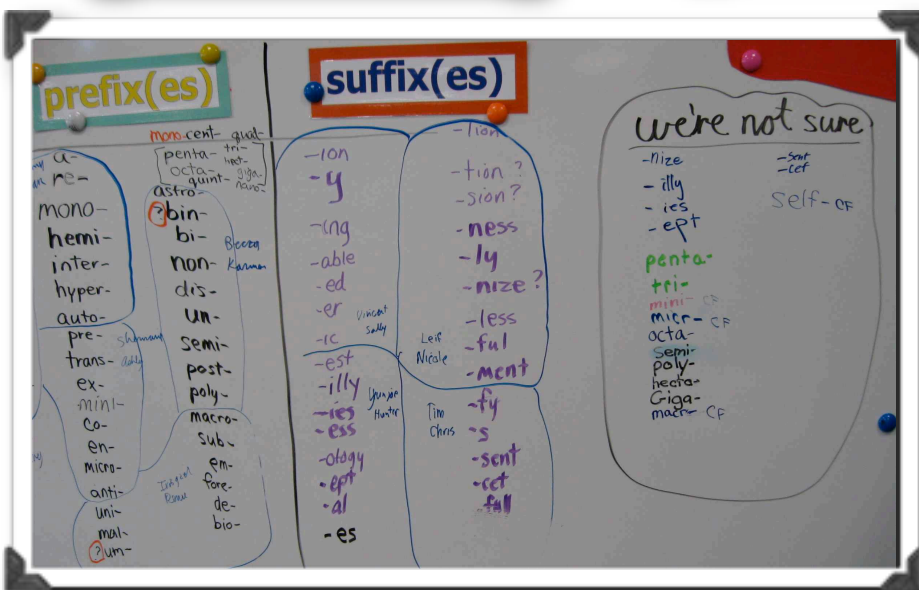 prefix(es)
mono- cent- quat-
penta- tri-
hect-
octa- giga-
quint- nano-
astro-
a-
re-
mono-
hemi-
inter-
hyper-
auto-
pre-
trans-
ex-
mini-
co-
en-
micro-
anti-
uni-
mal-
? um-
? bin-
bi-
non-
dis-
un-
semi-
post-
poly-
macro-
sub-
em-
fore-
de-
bio-
Karman
suffix(es)
-ion
-y
-ing
-able
-ed
-er
-ic
-est
-illy
-ies
-ess
-ology
-ept
-al
-es
Vincent
Sally
Hunter
-tion
-tion ?
-sion ?
-ness
-ly
-nize ?
-less
-ful
-ment
-fy
-s
-sent
-cet
-full
Leif
Nicole
Tim
Chris
we're not sure
-nize
-illy
-ies
-ept
penta-
tri-
mini- CF
micr- CF
octa-
semi-
poly-
hecto-
Giga-
macr- CF
-sent
-cet
self- CF